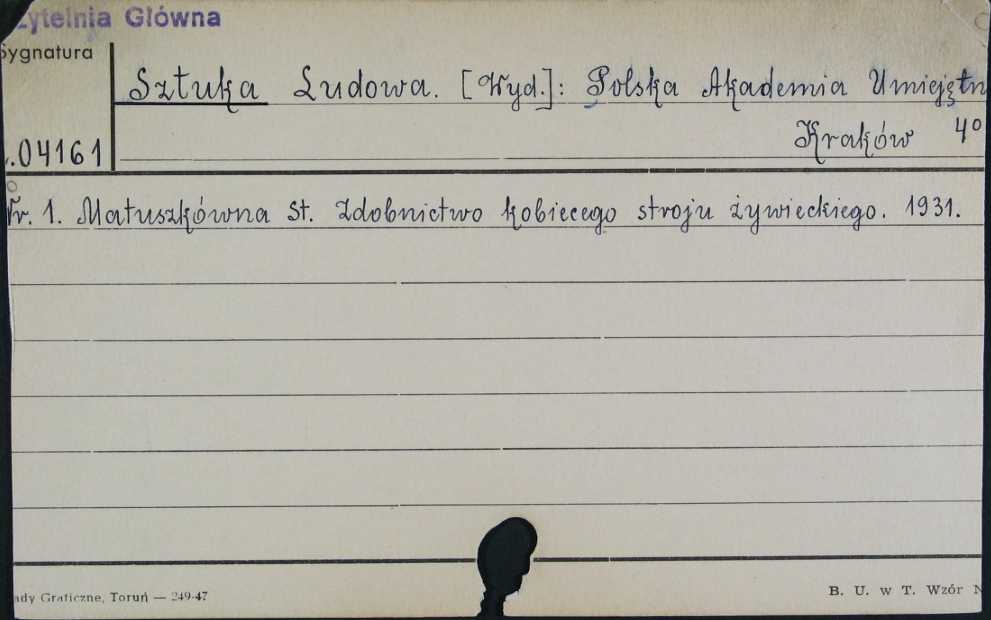 zytelnia Główna
Sygnatura
Sztuka Ludowa. [Wyd.]: Polska Akademia Umiejętn
Kraków 4º
.04161
Nr. 1. Matuszkówna St. Zdobnictwo kobiecego stroju żywieckiego. 1931.
ady Graficzne, Toruń — 249-47
B. U. w T. Wzór N